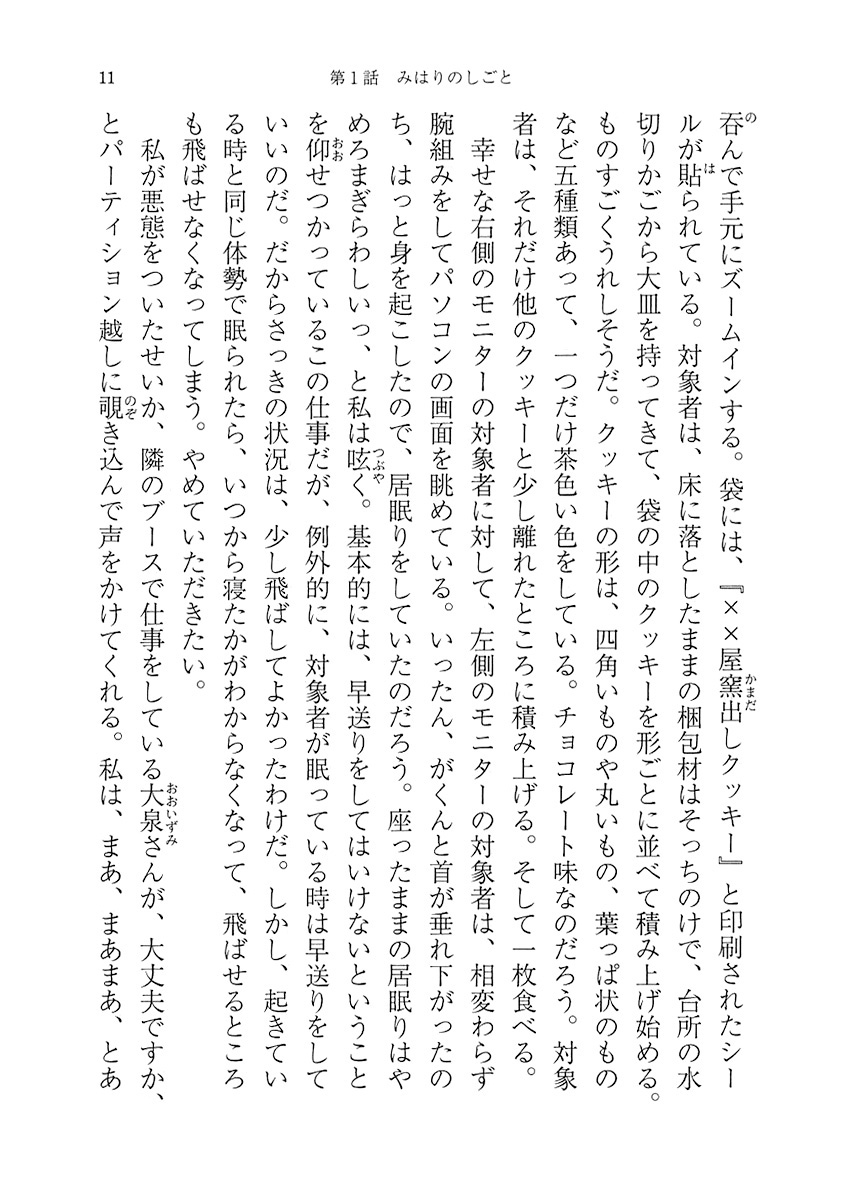 11
第1話　みはりのしごと
呑んで手元にズームインする。袋には、『××屋窯出しクッキー』と印刷されたシー
ルが貼られている。対象者は、床に落としたままの梱包材はそっちのけで、台所の水
切りかごから大皿を持ってきて、袋の中のクッキーを形ごとに並べて積み上げ始める。
ものすごくうれしそうだ。クッキーの形は、四角いものや丸いもの、葉っぱ状のもの
など五種類あって、一つだけ茶色い色をしている。チョコレート味なのだろう。対象
者は、それだけ他のクッキーと少し離れたところに積み上げる。そして一枚食べる。
　幸せな右側のモニターの対象者に対して、左側のモニターの対象者は、相変わらず
腕組みをしてパソコンの画面を眺めている。いったん、がくんと首が垂れ下がったの
ち、はっと身を起こしたので、居眠りをしていたのだろう。座ったままの居眠りはや
めろまぎらわしいっ、と私は呟く。基本的には、早送りをしてはいけないということ
を仰せつかっているこの仕事だが、例外的に、対象者が眠っている時は早送りをして
いいのだ。だからさっきの状況は、少し飛ばしてよかったわけだ。しかし、起きてい
る時と同じ体勢で眠られたら、いつから寝たかがわからなくなって、飛ばせるところ
も飛ばせなくなってしまう。やめていただきたい。
　私が悪態をついたせいか、隣のブースで仕事をしている大泉さんが、大丈夫ですか、
とパーティション越しに覗き込んで声をかけてくれる。私は、まあ、まあまあ、とあ